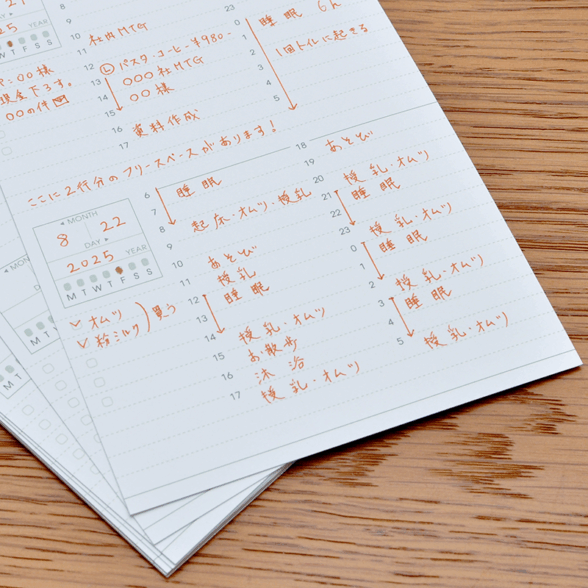 25
YEAR
W T F S S
P:〇〇様
現金下ろす。
〇〇の件
10
11 社内MTG
12 パスタ・コーヒー ¥980-
13 〇〇〇社MTG
14 〇〇様
15
16 資料作成
17
23
0 睡眠 6h
1
2 1回トイレに起きる
3
4
5
ここに2行分のフリースペースがあります!
MONTH
8 22
DAY
2025 YEAR
M T W T F S S
✓ オムツ
✓ 粉ミルク
買う
6 睡眠
7
8 起床・オムツ・授乳
9
10 あそび
11 授乳
12 睡眠
13
14 授乳・オムツ
15 お散歩
16 沐浴
17 授乳・オムツ
18 あそび
19
20 授乳・オムツ
21 睡眠
22
23 授乳・オムツ
0 睡眠
1
2 授乳・オムツ
3 睡眠
4
5 授乳・オムツ
MON
M T
M T